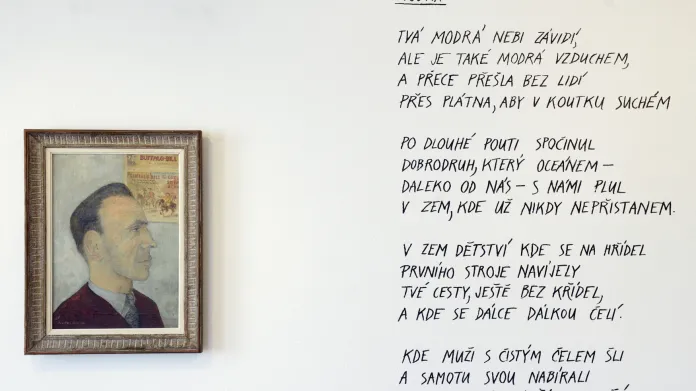 TVÁ MODRÁ NEBI ZÁVIDÍ,
ALE JE TAKÉ MODRÁ VZDUCHEM,
A PŘECE PŘEŠLA BEZ LIDÍ
PŘES PLÁTNA, ABY V KOUTKU SUCHÉM
PO DLOUHÉ POUTI SPOČINUL
DOBRODRUH, KTERÝ OCEÁNEM –
DALEKO OD NÁS – S NÁMI PLUL
V ZEM, KDE UŽ NIKDY NEPŘISTANEM.
V ZEM DĚTSTVÍ KDE SE NA HŘÍDEL
PRVNÍHO STROJE NAVÍJELY
TVÉ CESTY, JEŠTĚ BEZ KŘÍDEL,
A KDE SE DÁLCE DÁLKOU ČELÍ.
KDE MUŽI S ČISTÝM ČELEM ŠLI
A SAMOTU SVOU NABÍRALI
BUFFALO-BILL